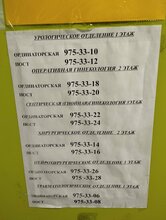 УРОЛОГИЧЕСКОЕ ОТДЕЛЕНИЕ 1 ЭТАЖ
ОРДИНАТОРСКАЯ 975-33-10
ПОСТ 975-33-12
ОПЕРАТИВНАЯ ГИНЕКОЛОГИЯ 2 ЭТАЖ
ОРДИНАТОРСКАЯ 975-33-18
ПОСТ 975-33-20
СЕПТИЧЕСКАЯ ГИНЕКОЛОГИЯ ЭТАЖ
ОРДИНАТОРСКАЯ 975-33-22
ПОСТ 975-33-24
ХИРУРГИЧЕСКОЕ 2 ЭТАЖ
ОРДИНАТОРСКАЯ 975-33-14
ПОСТ 975-33-16
НЕЙРОХИРУРГИЧЕСКОЕ ЭТАЖ
ОРДИНАТОРСКАЯ 975-33-26
ПОСТ 975-33-28
ТРАВМАТОЛОГИЧЕСКОЕ ЭТАЖ
ОРДИНАТОРСКАЯ 975-33-06
ПОСТ 975-33-08